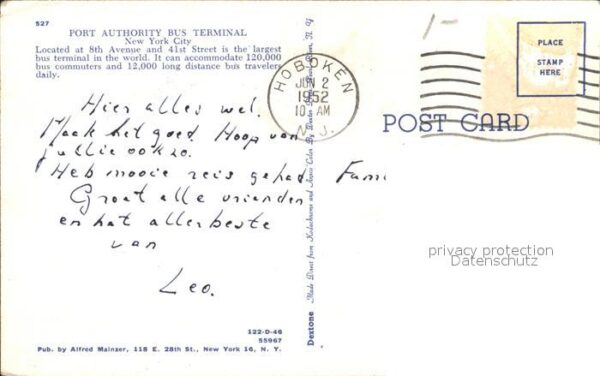 527
PORT AUTHORITY BUS TERMINAL
New York City
Located at 8th Avenue and 41st Street is the largest
bus terminal in the world. It can accommodate 120,000
bus commuters and 12,000 long distance bus travelers
daily.
Hier alles wel.
Maak het goed. Hoop van
jullie ook zo.
Heb mooie reis gehad. Fami
Groet alle vrienden
en het allerbeste
van
Leo.
122-D-46
55967
Pub. by Alfred Mainzer, 118 E. 28th St., New York 16, N. Y.
Dextone Made Direct from Kodachrome and Ansco Color By Dexter Press, Pearl River, N. Y.
HOBOKEN
JUN 2
1952
10 AM
N. J.
1-
PLACE
STAMP
HERE
POST CARD
privacy protection
Datenschutz